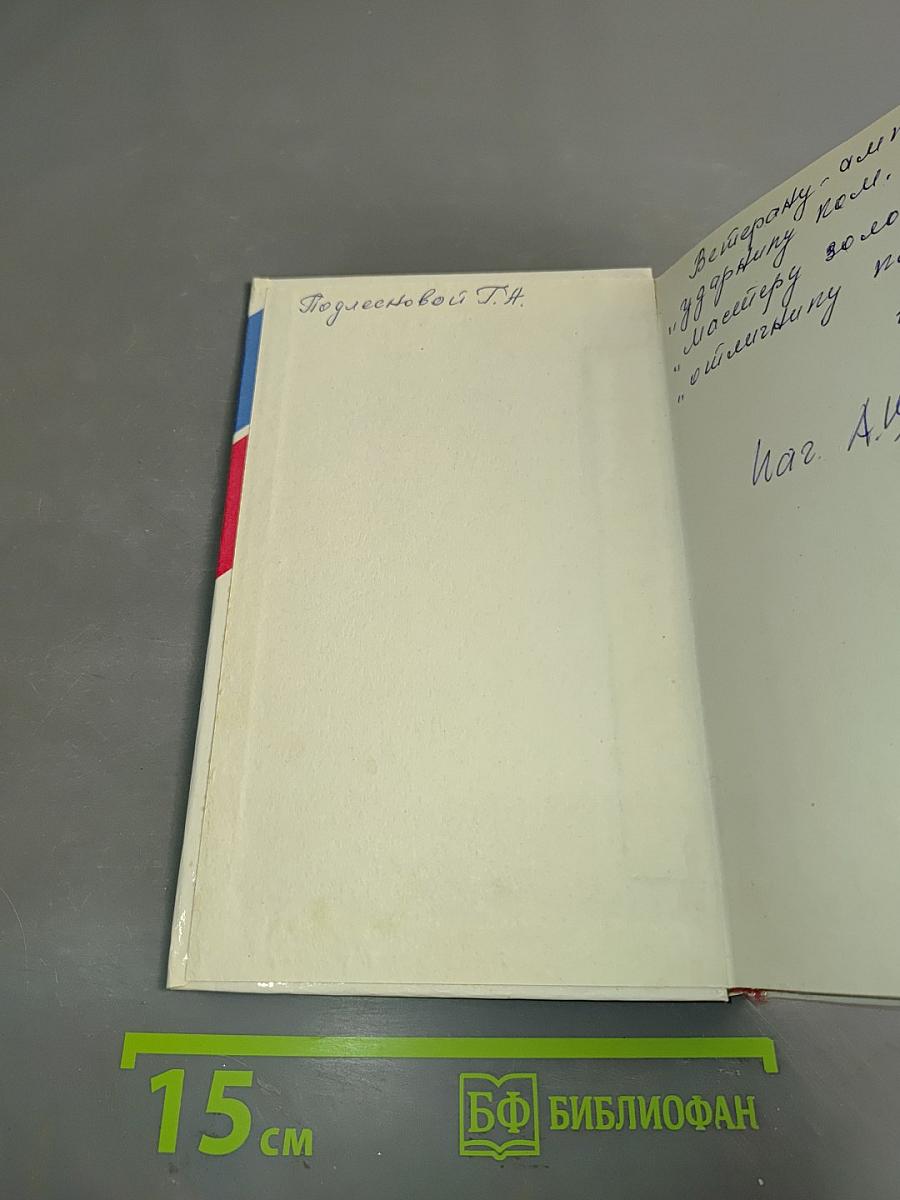 Подлесновой Г.А.
Ветерану-
"ударнику ком.
"мастеру золо
"отличнику
Нач. А.И
15 см
БФ БИБЛИОФАН